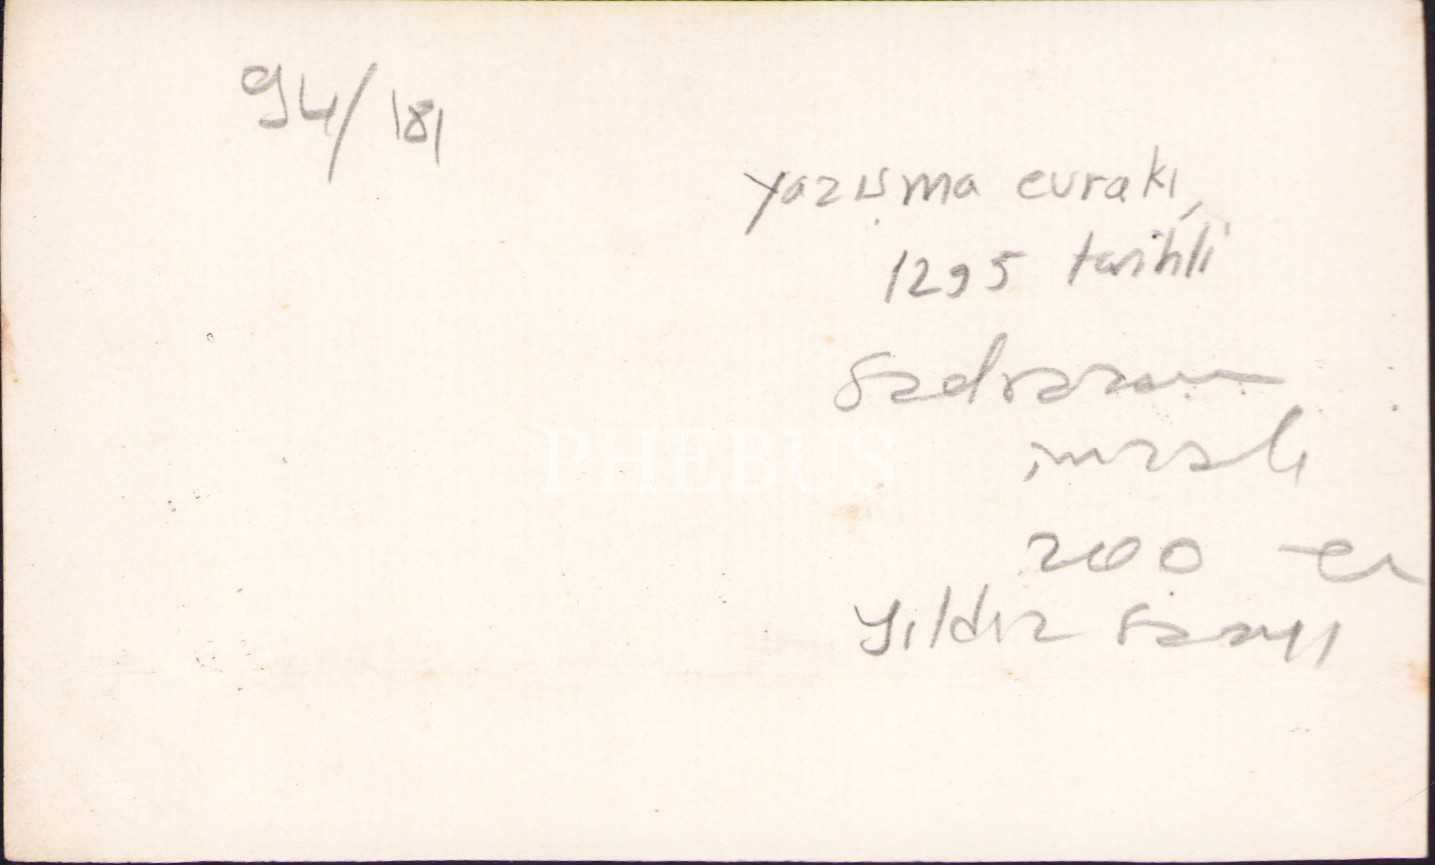 94/181
yazışma evrakı,
1295 tarihli
Sadrazam
imzalı
200
Yıldız Sarayı
PHEBUS